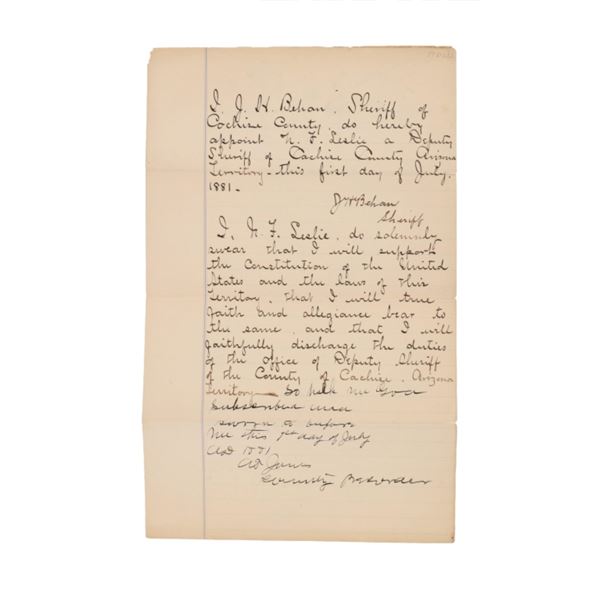 I, J. H. Behan, Sheriff of
Cochise County do hereby
appoint N. F. Leslie a Deputy
Sheriff of Cochise County Arizona
Territory - this first day of July,
1881 -
J H Behan
Sheriff
I, N. F. Leslie, do solemnly
swear that I will support
the Constitution of the United
States and the laws of this
Territory, that I will true
faith and allegiance bear to
the same, and that I will
faithfully discharge the duties
of the office of Deputy Sheriff
of the County of Cochise, Arizona
Territory - So help me God
Subscribed and
sworn to before
me this 1st day of July
AD 1881
AJ Jones
County Recorder